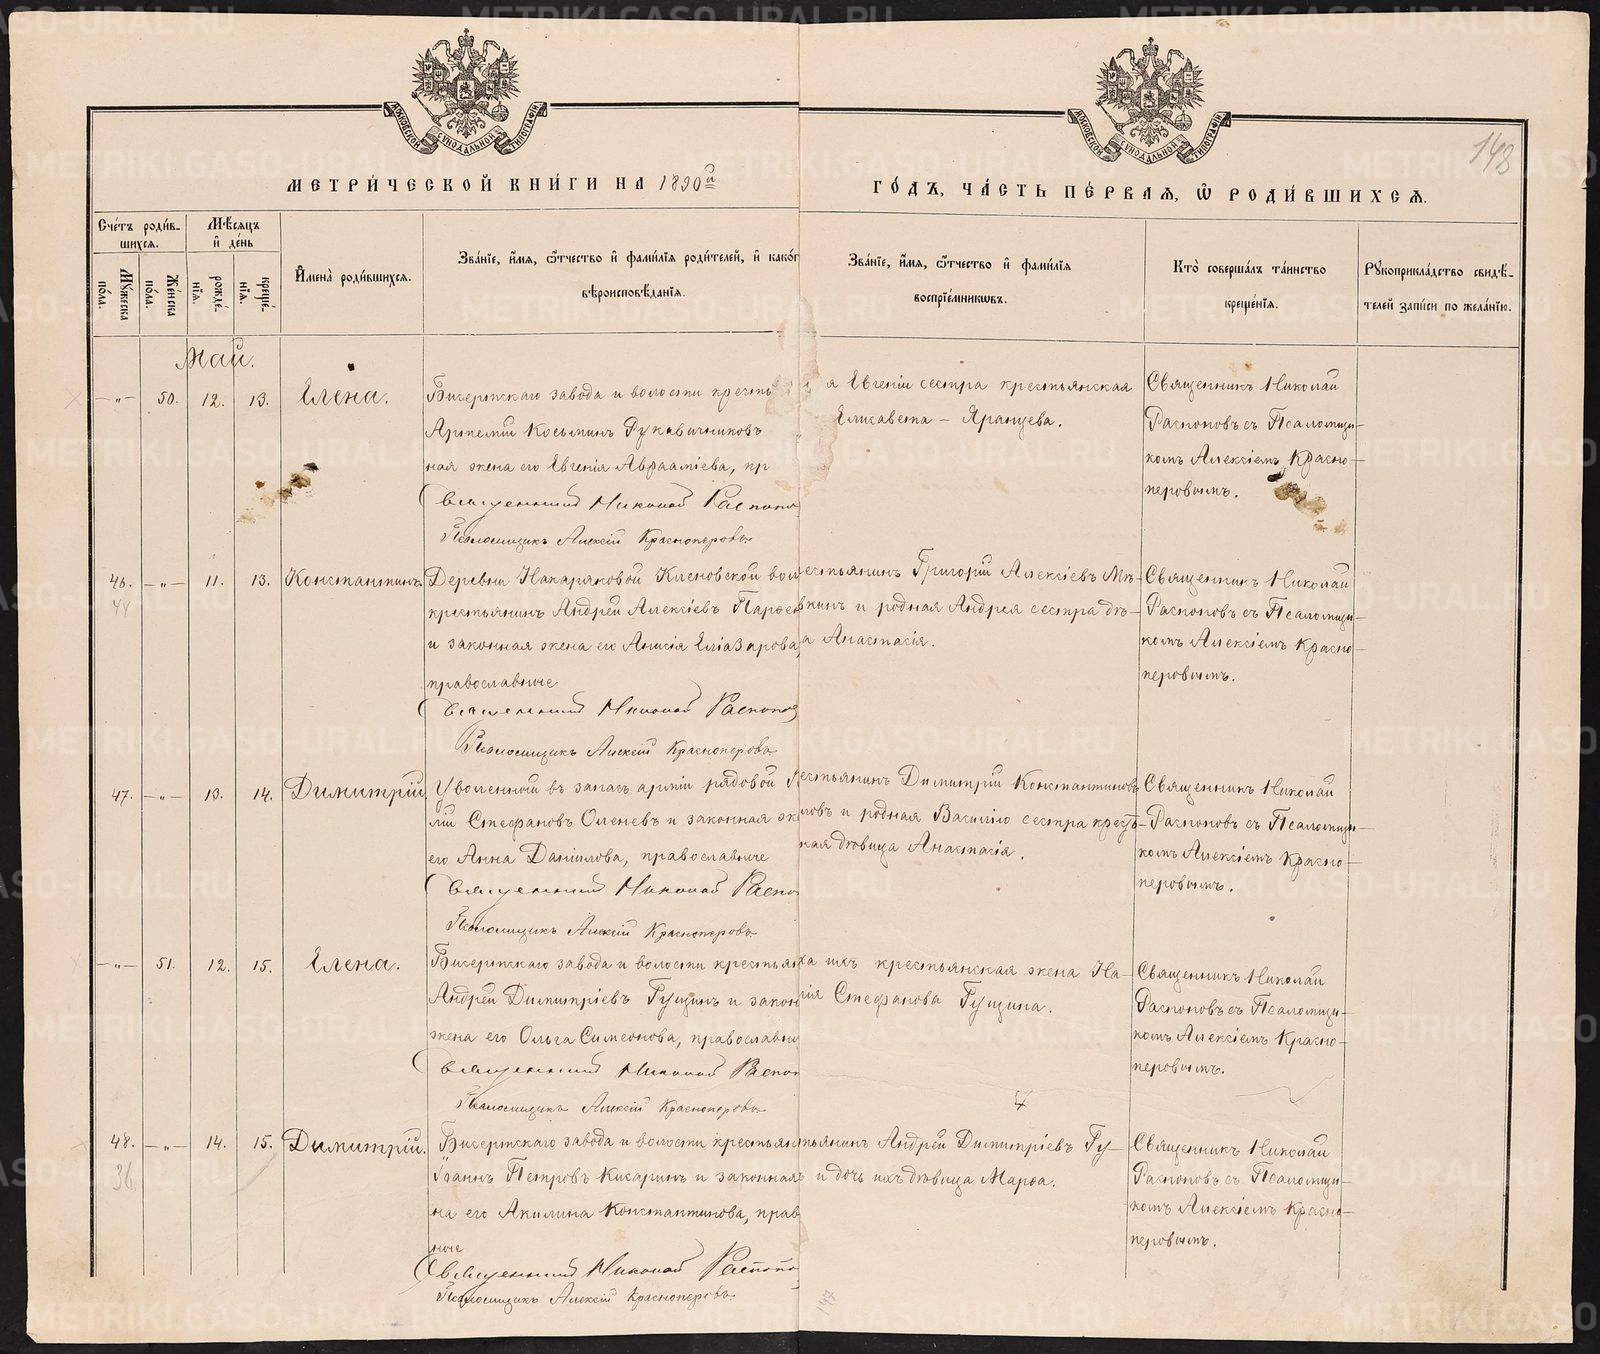 МОСКОВСКОЙ СѴНОДАЛЬНОЙ ТИПОГРАФІИ
МОСКОВСКОЙ СѴНОДАЛЬНОЙ ТИПОГРАФІИ
148
МЕТРИ́ЧЕСКОЙ КНИ́ГИ НА 1890й
ГО́ДЪ, ЧА́СТЬ ПЕ́РВАѦ, Ѡ РОДИ́ВШИХСѦ.
Сче́тъ роди́в-
шихся.
Мѣ́сяцъ
и҆ де́нь
Му́жеска
по́ла.
Же́нска
по́ла.
рожде́-
нїя.
креще́-
нїя.
И҆мена̀ роди́вшихся.
Зва́нїе, и҆́мя, ѻ҆́тчество и҆ фами́лїя роди́телей, и҆ како́г
вѣроисповѣ́данїя.
Зва́нїе, и҆́мя, ѻ҆́тчество и҆ фами́лїя
воспрїе́мниковъ.
Кто̀ соверша́лъ та́инство
креще́нїя.
Рукоприкла́дство свидѣ́-
телей за́писи по жела́нїю.
Май.
—„— 50. 12. 13. Елена.
Бисертскаго завода и волости кресть
Артемій Косьминъ Рукавичниковъ
ная жена его Евгенія Авраамiева, пр
Священникъ Николай Распопо
Псаломщикъ Алексій Красноперовъ
я Евгеніи сестра крестьянская
Елисавета – Яранцева.
Священникъ Николай
Распоповъ съ Псаломщи-
комъ Алексіемъ Красно-
перовымъ.
46. —„— 11. 13. Константинъ.
44
Деревни Накаряковой Кленовской вол
крестьянинъ Андрей Алексіевъ Парѳен
и законная жена его Анисія Еліазарова,
православные
Священникъ Николай Распопо
Псаломщикъ Алексій Красноперовъ
естьянинъ Григорій Алексіевъ
и родная Андрея сестра дѣ-
а Анастасія.
Священникъ Николай
Распоповъ съ Псаломщи-
комъ Алексіемъ Красно-
перовымъ.
47. —„— 13. 14. Димитрій.
Уволенный въ запасъ арміи рядовой
лій Стефановъ Оленевъ и законная же
его Анна Даніилова, православные
Священникъ Николай Распо
Псаломщикъ Алексій Красноперовъ
естьянинъ Димитрій Константиновъ
ловъ и родная Василію сестра кресть-
ная дѣвица Анастасія.
Священникъ Николай
Распоповъ съ Псаломщи-
комъ Алексіемъ Красно-
перовымъ.
—„— 51. 12. 15. Елена.
Бисертскаго завода и волости крестьян
Андрей Димитріевъ Гущинъ и закон
жена его Ольга Симеонова, православны
Священникъ Николай Распоп
Псаломщикъ Алексій Красноперовъ
ха ихъ крестьянская жена На-
лія Стефанова Гущина.
Священникъ Николай
Распоповъ съ Псаломщи-
комъ Алексіемъ Красно-
перовымъ.
48. —„— 14. 15. Димитрій.
36
Бисертскаго завода и волости крестьян
Іоаннъ Петровъ Кисаринъ и законная
на его Акилина Константинова, прав
ные
Священникъ Николай Распопо
Псаломщикъ Алексій Красноперовъ
тьянинъ Андрей Димитріевъ Гу-
и дочь ихъ дѣвица Марѳа.
Священникъ Николай
Распоповъ съ Псаломщи-
комъ Алексіемъ Красно-
перовымъ.
147
METRIKI.GASO-URAL.RU